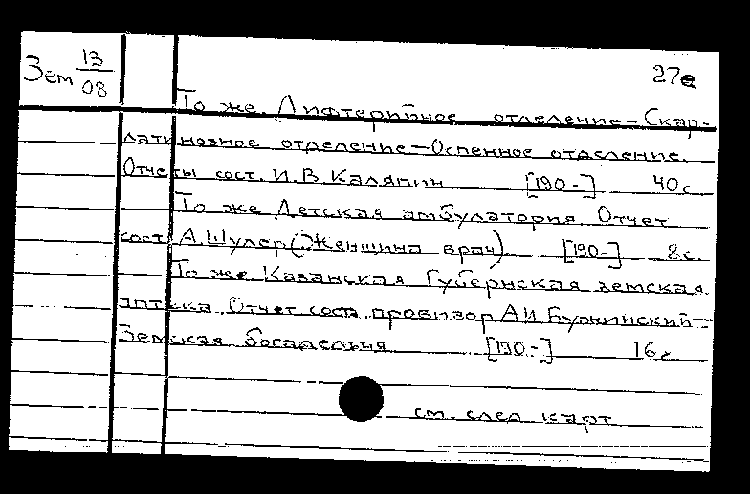 Зем 13/08
27е
То же. Дифтерийное отделение — Скар-
латинозное отделение — Оспенное отделение.
Отчеты сост. И.В. Каляпин [190-] 40с
То же Детская амбулатория Отчет
сост. А. Шулер (Женщина врач) [190-] 8с.
То же Казанская Губернская земская
аптека. Отчет соста. провизор А.И.
Земская богадельня [190-] 16с
см. след карт